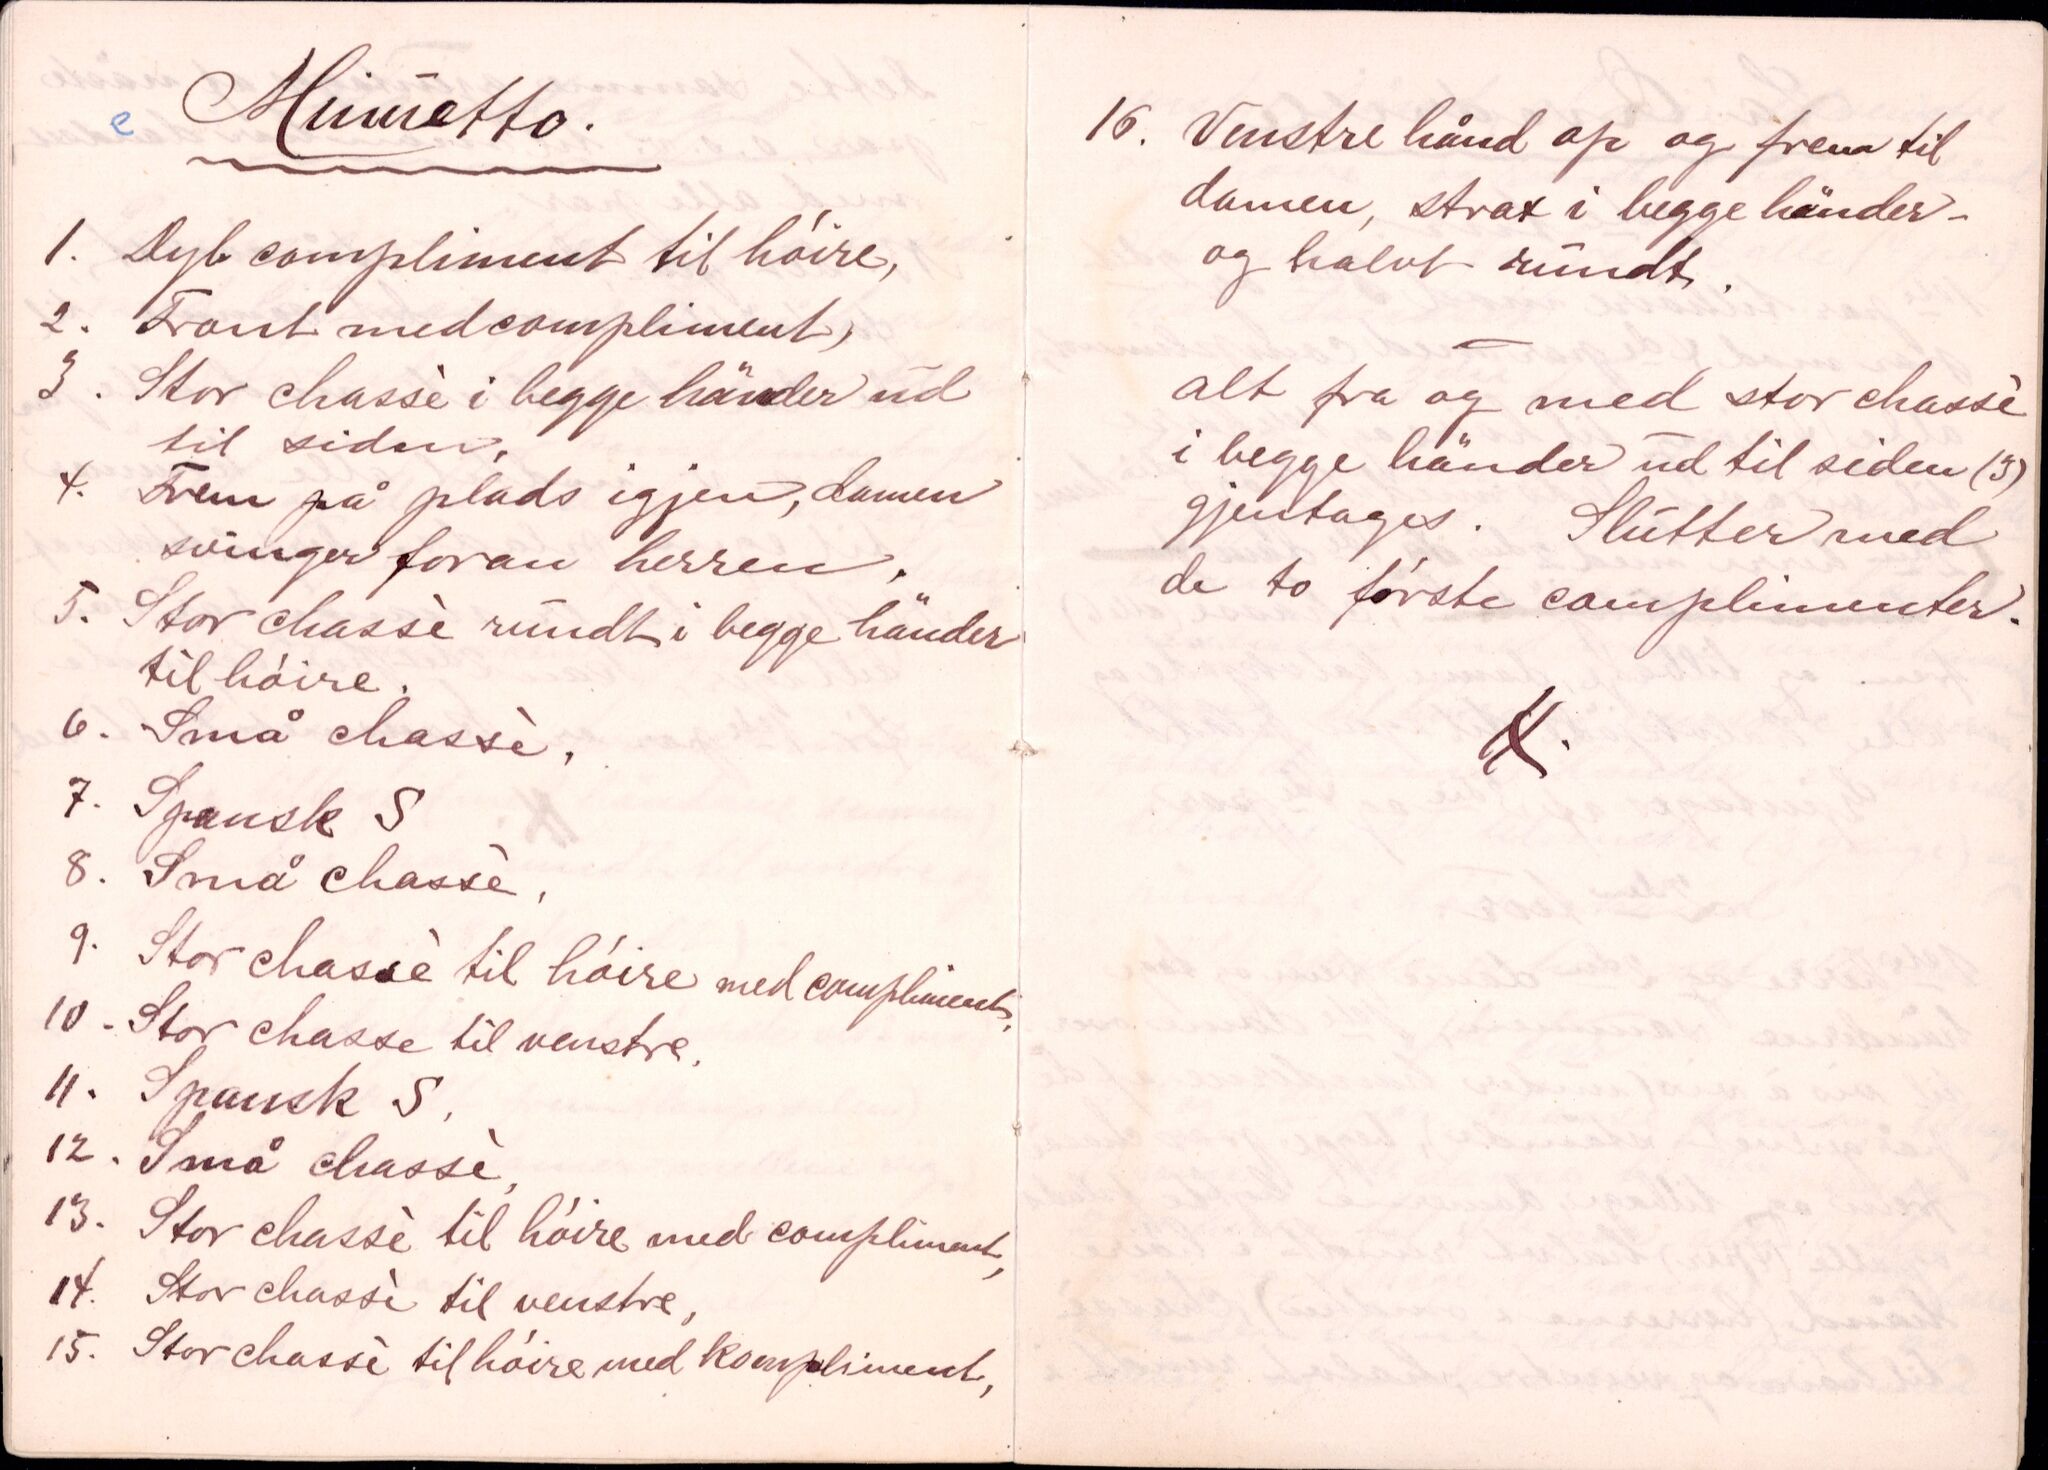 e Minuetto.
1. Dyb compliment til höire,
2. Front med compliment,
3. Stor chassè i begge händer ud
til siden,
4. Frem på plads igjen, damen
svinger foran herren,
5. Stor chassè rundt i begge händer
til höire.
6. Små chassè,
7. Spansk S
8. Små chassè,
9. Stor chassè til höire med compliment,
10. Stor chasse til venstre,
11. Spansk S,
12. Små chassè,
13. Stor chassè til höire med compliment,
14. Stor chassè til venstre,
15. Stor chassè til höire med kompliment,
16. Venstre hånd op og frem til
damen, strax i begge händer -
og halvt rundt.
alt fra og med stor chassè
i begge händer ud til siden (3)
gjentages. Slutter med
de to förste complimenter.